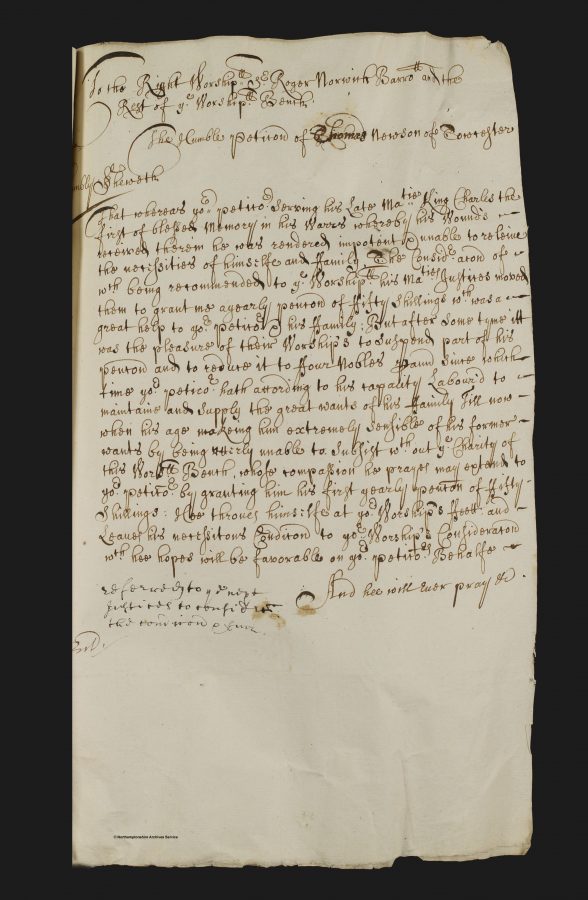 To the Right Worshipll Sr Roger Norwich Barrott and the
Rest of ye Worshipll Bench
The Humble Peticon of Thomas Newson of Towcester
mbly Sheweth
That whereas yor peticor Serving his Late Matie King Charles the
first of blessed Memory in his Warrs whereby his Wounds
received therein he was rendered impotent & unable to releive
the necessities of himselfe and Family The Consideracon of
wch being recommended to ye Worshipll his Maties Justices moved
them to grant me a yearly pencon of Fifty Shillings wch was a
great help to yor peticor & his Family; But after some tyme itt
was the pleasure of their Worshipps to Suspend part of his
pencon and to reduce it to Four Nobles p Annu Since which
time yor peticor hath according to his capacity Labour'd to
maintaine and Supply the great wants of his Family till now
when his age makeing him extremely Sensible of his former
wants by being utterly unable to Subsist wth out ye Charity of
this Worpll Bench, whose compassion he prayes may extend to
yor peticor by granting him his first yearly pencon of Fifty
Shillings: Hee throws himselfe at yor Worships Feet and
Leaves his necessitous Condicon to yor Worships Consideracon
wch hee hopes will be favorable on yor peticors Behalfe
And hee will ever pray &c.
referred to ye next
Justices to consider
the
© Northamptonshire Archives Service